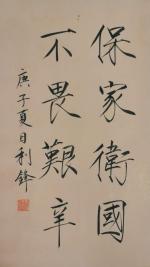 保家衛國
不畏艱辛
庚子夏日利鋒